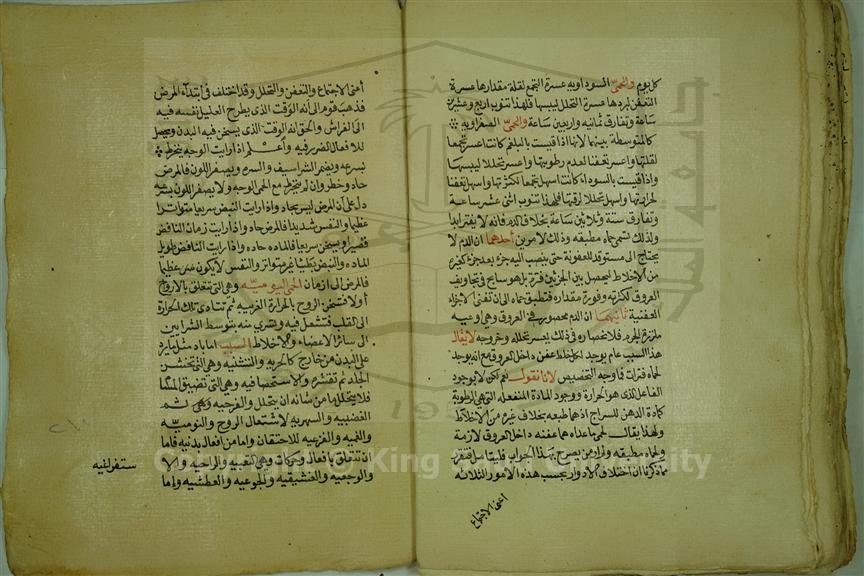 كل يوم والحمى السوداويه عسرة التجمع لقلة مقدارها عسرة
التعفن لبردها عسرة التحلل ليبسها فلهذا تنوب اربع وعشرين
ساعة وتفارق ثمانيه واربعين ساعة والحمى الصفراويه
كالمتوسطة بينهما لانها اذا قيست بالبلغم كانت اعسر تجمعا
لقلتها واعسر تعفنا لعدم رطوبتها واعسر تحللا ليبسها
واذا قيست بالسوداء كانت اسهل تجمعا لكثرتها واسهل تعفنا
لحرارتها واسهل تحللا لرقتها فلهذا تنوب اثنى عشر ساعة
وتفارق ستة وثلاثين ساعة بخلاف الدم فانه لا يفتر ابدا
ولذلك تسمى حماه مطبقه وذلك لامرين أحدهما ان الدم لا
يحتاج الى مستوقد للعفونة حتى ينصب اليه جزء بعد جزء كغيره
من الاخلاط ليحصل بين الجزئين فترة بل هو سايح في تجاويف
العروق لكثرته وفورة مقداره فتطبق حماه الى ان تفنى الاجزاء
العفنية ثانيهما ان الدم محصور في العروق وهي اوعيه
ملززة الجرم فلانحصاره في ذلك يعسر تحلله وخروجه لا يقال
هذا السبب عام يوجد لكل خلط عفن داخل العروق مع انه يوجد
لحماه فترات فما وجه التخصيص لانا نقول نعم لكن لا بوجود
الفاعل الذى هو الحرارة ووجود المادة المنفعله التى هى الرطوبة
كمادة الدهن للسراج اذ هما طبعه بخلاف غيره من الاخلاط
ولهذا يقال لحمى ما عداه مما عفنه داخل العروق لازمة
ولحماه مطبقه ولم ار من يصرح بهذا الجواب فليتامل فتقرر
مما ذكرنا ان اختلاف الادوار بحسب هذه الامور الثلاثه
اعنى الاجتماع
أعنى الاجتماع والتعفن والتحلل وقد اختلف فى ابتدآء المرض
فذهب قوم الى انه الوقت الذى يطرح العليل نفسه فيه
الى الفراش والحق انه الوقت الذى يسخن فيه البدن ويحصل
للافعال الضرر فيه وأعلم اذا رايت الوجه ينخرط
بسرعه ويضمر الشراسيف والسره ويصفر اللون فالمرض
حاد وخطر وان لم ينخرط مع الحمى الوجه ولا يصفر اللون بسرعه
دل على أن المرض ليس بحاد واذا رايت النبض سريعا متواترا
عظيما والنفس شديدا فالمرض حاد واذا رايت زمان النافض
قصيرا ويسخن سريعا فالماده حاده واذا رايت النافض طويل
الماده والنبض بطيئا غير متواتر والنفس لا يكون سريعا عظيما
فالمرض الى ازمان الحمى اليوميه وهى التى تتعلق بالارواح
أولا فتسخن الروح بالحرارة الغريبه ثم تتادى تلك الحرارة
الى القلب فتشتعل فيه وتسرى منه بتوسط الشرايين
الى سائر الاعضاء والاخلاط السبب اما باد مثل ما يرد
على البدن من خارج كالحريه والتنشفيه وهى التى تتخشن
الجلد ثم تقشره والاستحصافيه وهى التى تضيق المسام
فلا يتحلل ما من شانه ان يتحلل والفرحيه
الغضبيه والسهريه لاشتعال الروح والنوميه
والغميه والفزعيه للاحتقان واما من افعال بدنيه فاما
ان تتعلق بافعال وحركات وهى التعبيه والراحيه
والوجعيه والغشيقيه والجوعيه والعطشيه واما
ستفرغيه
Copyright © King Saud University